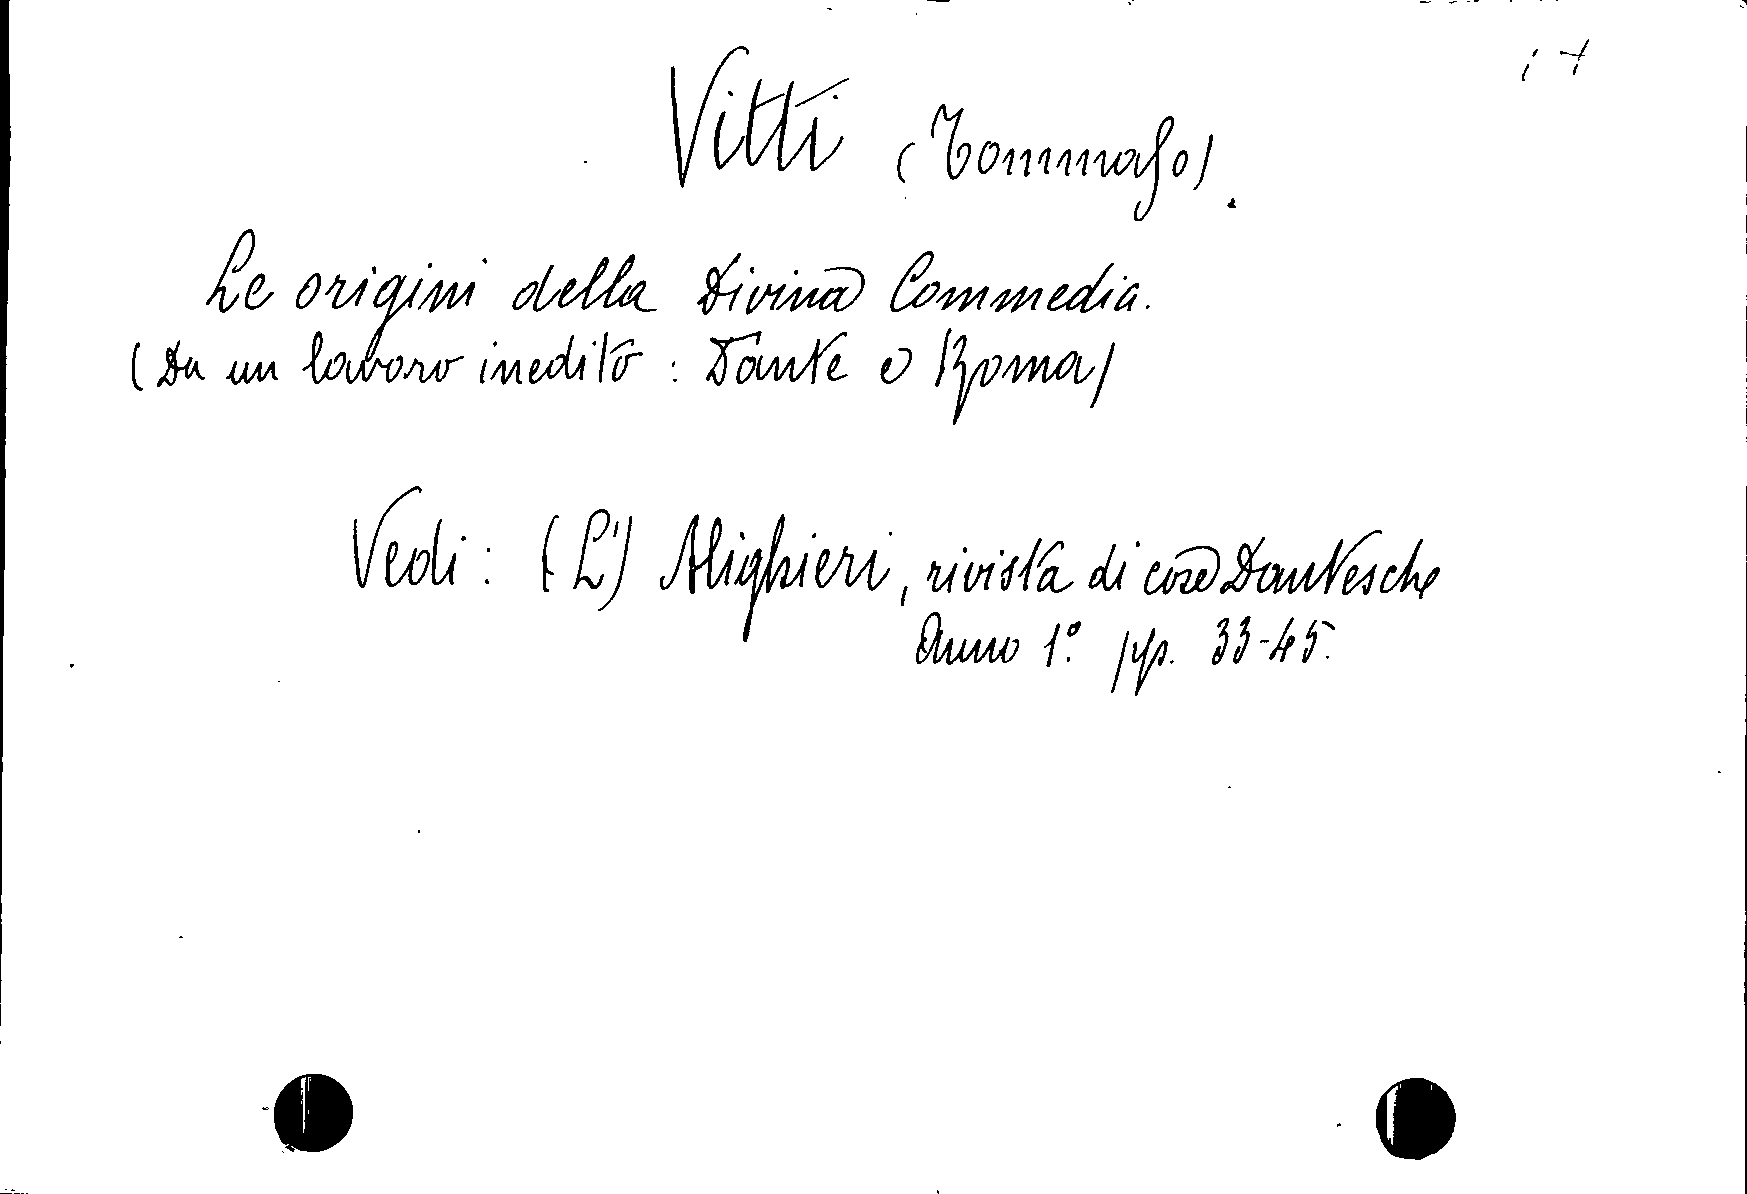 Vitti (Tommaso).
Le origini della Divina Commedia.
(Da un lavoro inedito: Dante e Roma)
Vedi: (L') Alighieri, rivista di cose Dantesche
Anno 1º. pp. 33-45.